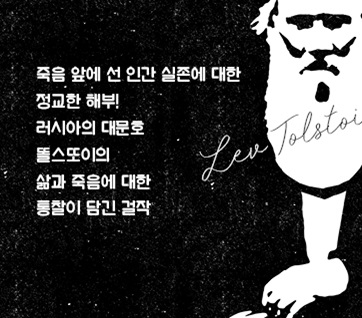 죽음 앞에 선 인간 실존에 대한
정교한 해부!
러시아의 대문호
똘스또이의
삶과 죽음에 대한
통찰이 담긴 걸작
Lev Tolstoi